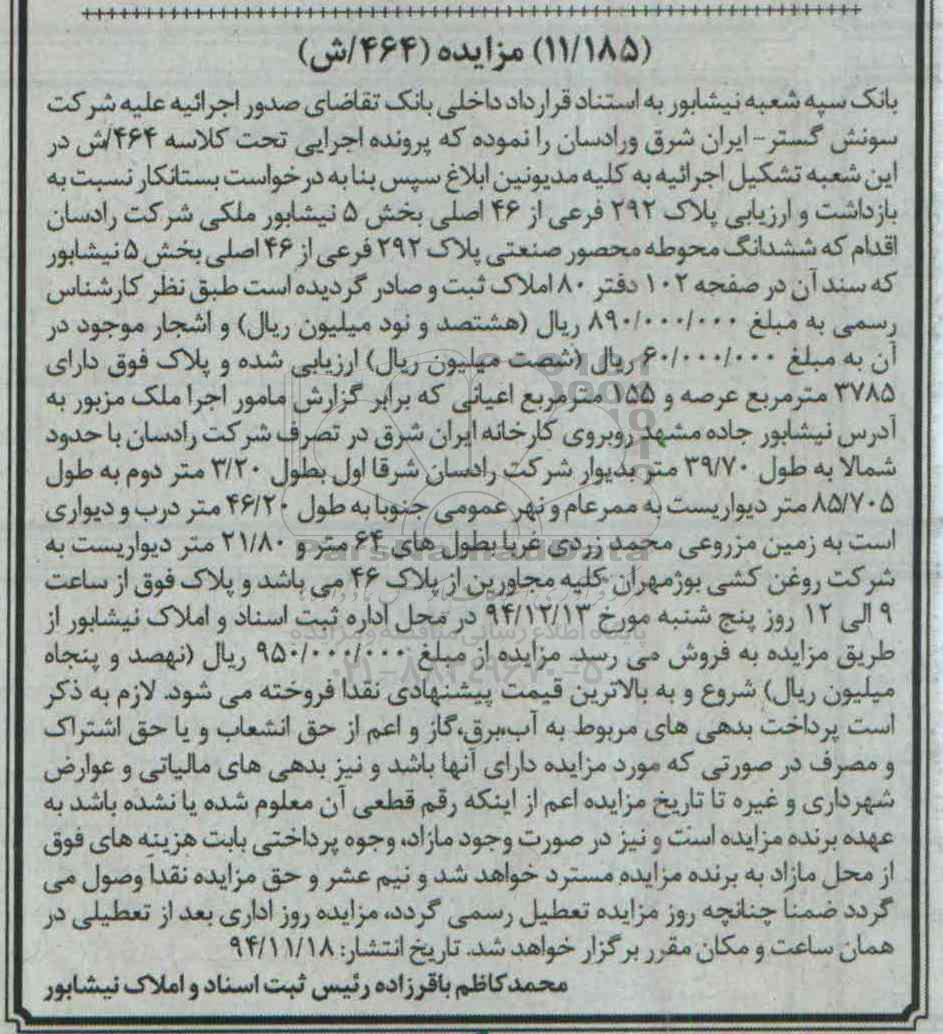 (۱۱/۱۸۵) مزایده (۴۶۴/ش)
بانک سپه شعبه نیشابور به استناد قرارداد داخلی بانک تقاضای صدور اجرائیه علیه شرکت
سونش گستر- ایران شرق ورادسان را نموده که پرونده اجرایی تحت کلاسه ۴۶۴/ش در
این شعبه تشکیل اجرائیه به کلیه مدیونین ابلاغ سپس بنا به درخواست بستانکار نسبت به
بازداشت و ارزیابی پلاک ۲۹۲ فرعی از ۴۶ اصلی بخش ۵ نیشابور ملکی شرکت رادسان
اقدام که ششدانگ محوطه محصور صنعتی پلاک ۲۹۲ فرعی از ۴۶ اصلی بخش ۵ نیشابور
که سند آن در صفحه ۱۰۲ دفتر ۸۰ املاک ثبت و صادر گردیده است طبق نظر کارشناس
رسمی به مبلغ ۸۹۰/۰۰۰/۰۰۰ ریال (هشتصد و نود میلیون ریال) و اشجار موجود در
آن به مبلغ ۶۰/۰۰۰/۰۰۰ ریال (شصت میلیون ریال) ارزیابی شده و پلاک فوق دارای
۳۷۸۵ مترمربع عرصه و ۱۵۵ مترمربع اعیانی که برابر گزارش مامور اجرا ملک مزبور به
آدرس نیشابور جاده مشهد روبروی کارخانه ایران شرق در تصرف شرکت رادسان با حدود
شمالا به طول ۳۹/۷۰ متر بدیوار شرکت رادسان شرقا اول بطول ۳/۲۰ متر دوم به طول
۸۵/۷۰۵ متر دیواریست به ممرعام و نهر عمومی جنوبا به طول ۴۶/۲۰ متر درب و دیواری
است به زمین مزروعی محمد زردی غربا بطول های ۶۴ متر و ۲۱/۸۰ متر دیواریست به
شرکت روغن کشی بوژمهران کلیه مجاورین از پلاک ۴۶ می باشد و پلاک فوق از ساعت
۹ الی ۱۲ روز پنج شنبه مورخ ۹۴/۱۲/۱۳ در محل اداره ثبت اسناد و املاک نیشابور از
طریق مزایده به فروش می رسد. مزایده از مبلغ ۹۵۰/۰۰۰/۰۰۰ ریال (نهصد و پنجاه
میلیون ریال) شروع و به بالاترین قیمت پیشنهادی نقدا فروخته می شود. لازم به ذکر
است پرداخت بدهی های مربوط به آب،برق،گاز و اعم از حق انشعاب و یا حق اشتراک
و مصرف در صورتی که مورد مزایده دارای آنها باشد و نیز بدهی های مالیاتی و عوارض
شهرداری و غیره تا تاریخ مزایده اعم از اینکه رقم قطعی آن معلوم شده یا نشده باشد به
عهده برنده مزایده است و نیز در صورت وجود مازاد، وجوه پرداختی بابت هزینه های فوق
از محل مازاد به برنده مزایده مسترد خواهد شد و نیم عشر و حق مزایده نقدا وصول می
گردد ضمنا چنانچه روز مزایده تعطیل رسمی گردد، مزایده روز اداری بعد از تعطیلی در
همان ساعت و مکان مقرر برگزار خواهد شد. تاریخ انتشار: ۹۴/۱۱/۱۸
محمدکاظم باقرزاده رئیس ثبت اسناد و املاک نیشابور
پایگاه اطلاع رسانی مناقصه و مزایده
۰۲۱-۸۸۳۴۹۶۷۰-۵